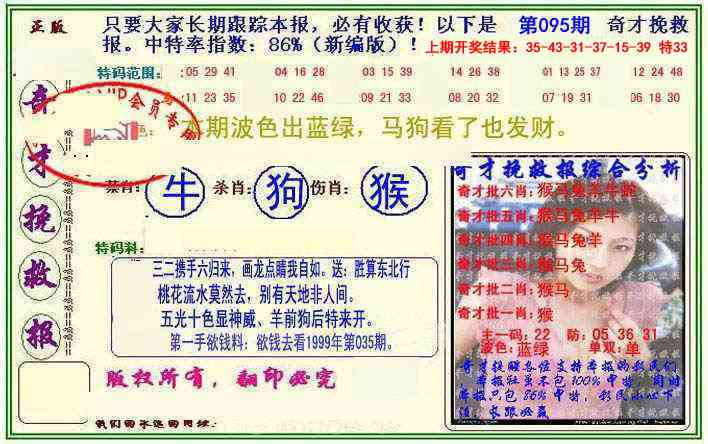 正版
只要大家长期跟踪本报，必有收获！以下是 第095期 奇才挽救
报。中特率指数：86%（新编版）！上期开奖结果：35-43-31-37-15-39 特33
特码范围：05 29 41 04 16 28 03 15 39 14 26 38 01 13 25 37 12 24 48
11 23 35 10 22 46 09 21 33 08 20 32 07 19 31 06 18 30
会员专
本期波色出蓝绿，马狗看了也发财。
奇才挽救报
禁肖：牛 杀肖：狗 伤肖：猴
特码料：
三二携手六归来，画龙点睛我自如。送：胜算东北行
桃花流水莫然去，别有天地非人间。
五光十色显神威、羊前狗后特来开。
第一手欲钱料：欲钱去看1999年第035期。
版权所有，翻印必究
奇才挽救报综合分析
奇才批六肖：猴马兔羊牛蛇
奇才批五肖：猴马兔羊牛
奇才批四肖：猴马兔羊
奇才批三肖：猴马兔
奇才批二肖：猴马
奇才批一肖：猴
主一码：22 防：05 36 31
波色：蓝绿 单双：单
奇才提醒各位支持本报的彩民们
，本报社虽不包100%中特，同时
本报只包86%中特，彩民小心下
注，长跟必赢